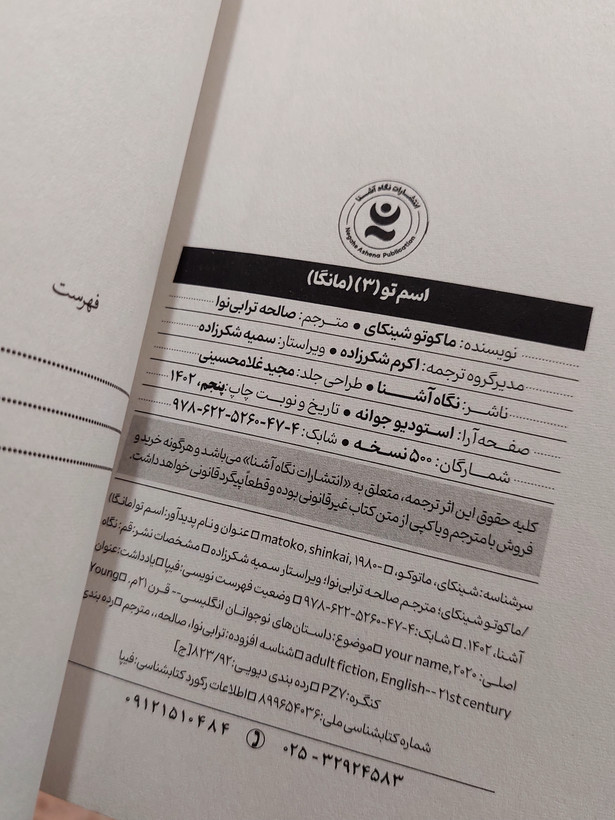 فهرست
انتشارات نگاه آشنا
Negahe Ashena Publication
اسم تو (۳) (مانگا)
نویسنده: ماکوتو شینکای • مترجم: صالحه ترابی‌نوا
مدیر گروه ترجمه: اکرم شکرزاده • ویراستار: سمیه شکرزاده
ناشر: نگاه آشنا • طراحی جلد: مجید غلامحسینی
صفحه‌آرا: استودیو جوانه • تاریخ و نوبت چاپ: پنجم، ۱۴۰۲
شمارگان: ۵۰۰ نسخه • شابک: ۴-۴۷-۵۲۶۰-۶۲۲-۹۷۸
کلیه حقوق این اثر ترجمه، متعلق به «انتشارات نگاه آشنا» می‌باشد و هرگونه خرید و
فروش یا مترجم و یا کپی از متن کتاب غیرقانونی بوده و قطعاً پیگرد قانونی خواهد داشت.
سرشناسه: شینکای، ماتوکو، -۱۹۸۰ matoko, shinkai, □ عنوان و نام پدیدآور: اسم تو (مانگا)
/ماکوتو شینکای؛ مترجم صالحه ترابی‌نوا؛ ویراستار سمیه شکرزاده □ مشخصات نشر: قم: نگاه
آشنا، ۱۴۰۲. □ شابک: ۴-۴۷-۵۲۶۰-۶۲۲-۹۷۸ □ وضعیت فهرست نویسی: فیپا □ یادداشت: عنوان
اصلی: your name, ۲۰۲۰ □ موضوع: داستان‌های نوجوانان انگلیسی-- قرن ۲۱م. □ Young
adult fiction, English-- 21st century □ شناسه افزوده: ترابی‌نوا، صالحه،، مترجم □ رده بندی
کنگره: PZ۷ □ رده بندی دیویی: ۸۲۳/۹۲[ج]
شماره کتابشناسی ملی: ۸۹۹۶۵۴۰۳۶ □ اطلاعات رکورد کتابشناسی: فیپا
۰۲۵ - ۳۲۹۲۴۵۸۳ ۰۹۱۲۱۵۱۰۴۸۴